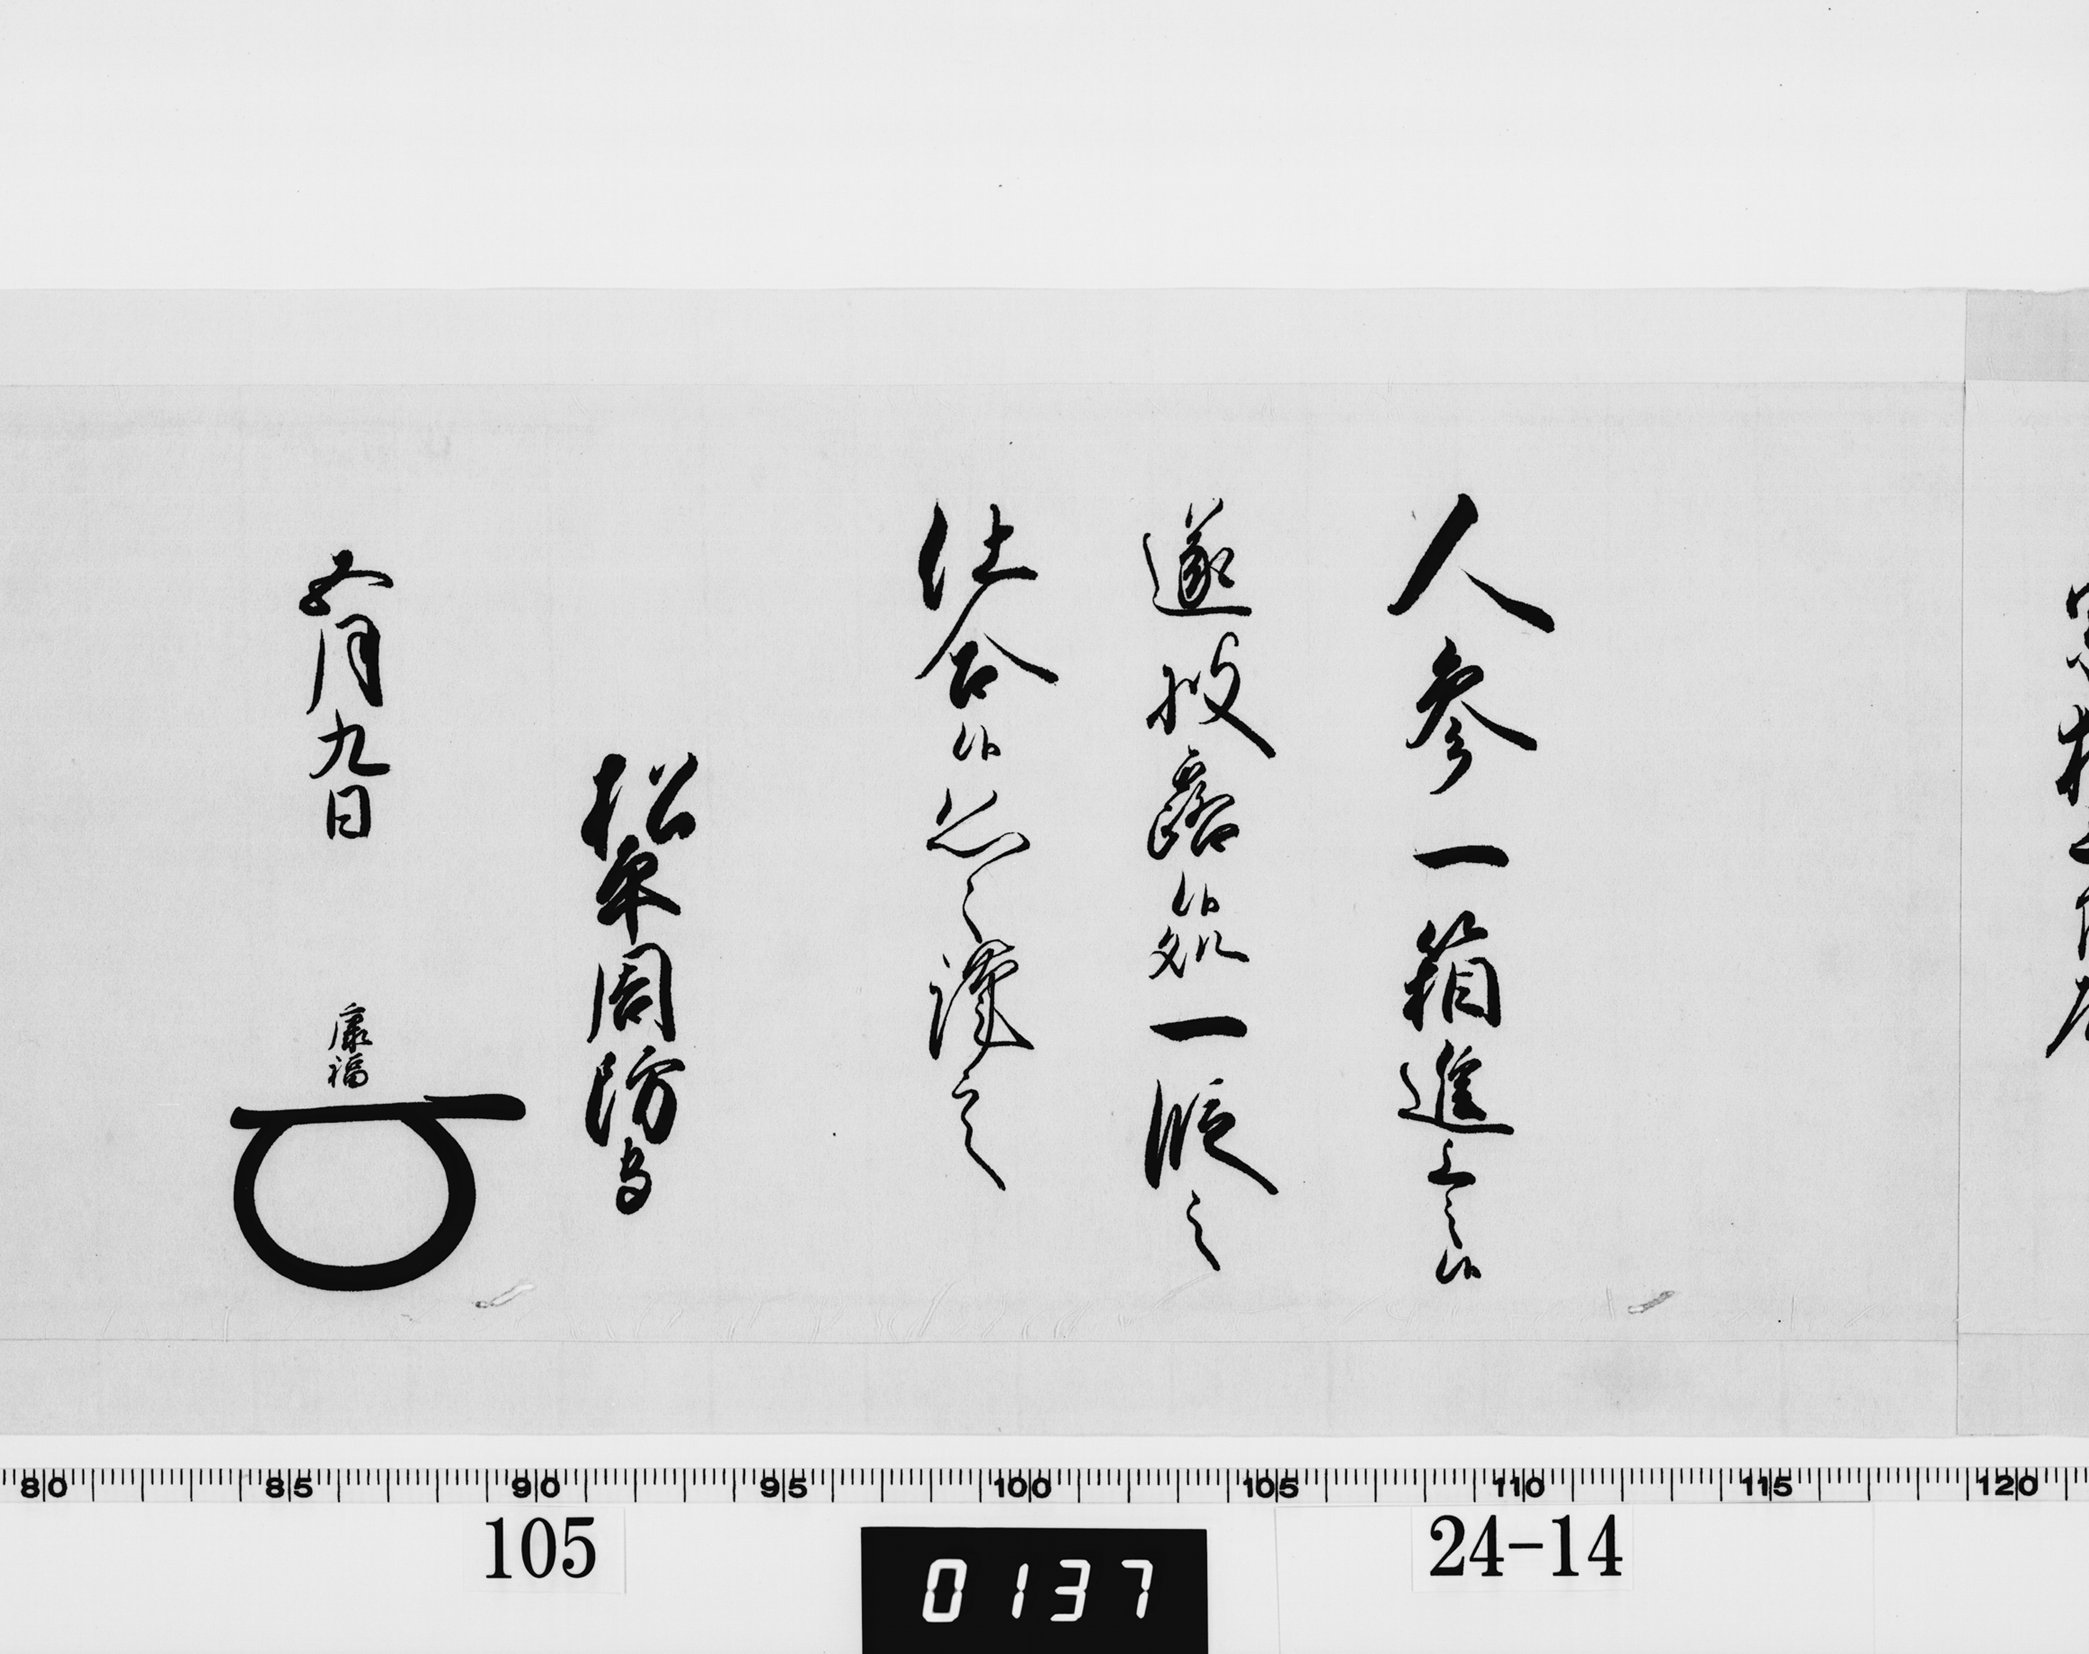 人参一箱進上之候
遂披露候処一段之
仕合候恐々謹言
松平周防守
五月九日
康福
80 85 90 95 100 105 110 115 120
105
0137
24-14